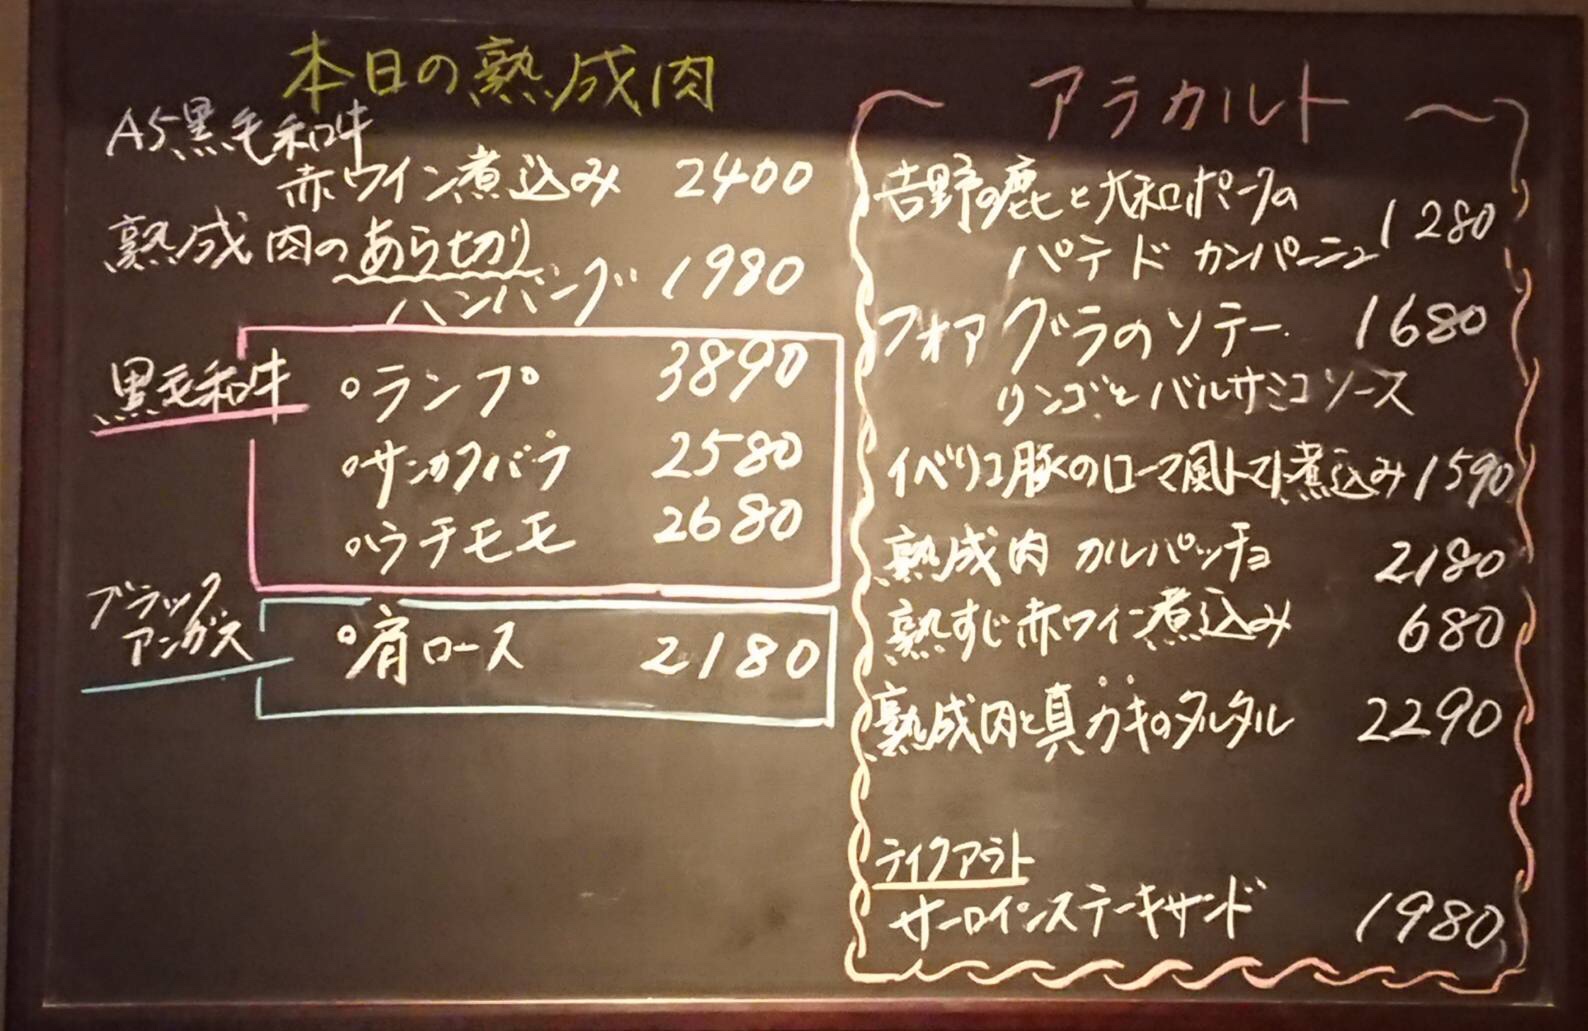 本日の熟成肉
A5黒毛和牛
赤ワイン煮込み 2400
熟成肉のあら切り
ハンバーグ 1980
黒毛和牛
ランプ 3890
サンカクバラ 2580
ウチモモ 2680
ブラック
アンガス
肩ロース 2180
～ アラカルト ～
吉野の鹿と大和ポークの
パテ ド カンパーニュ 1280
フォアグラのソテー 1680
リンゴとバルサミコソース
イベリコ豚のローマ風トマト煮込み 1590
熟成肉 カルパッチョ 2180
熟すじ赤ワイン煮込み 680
熟成肉と真ガキのタルタル 2290
テイクアウト
サーロインステーキサンド 1980